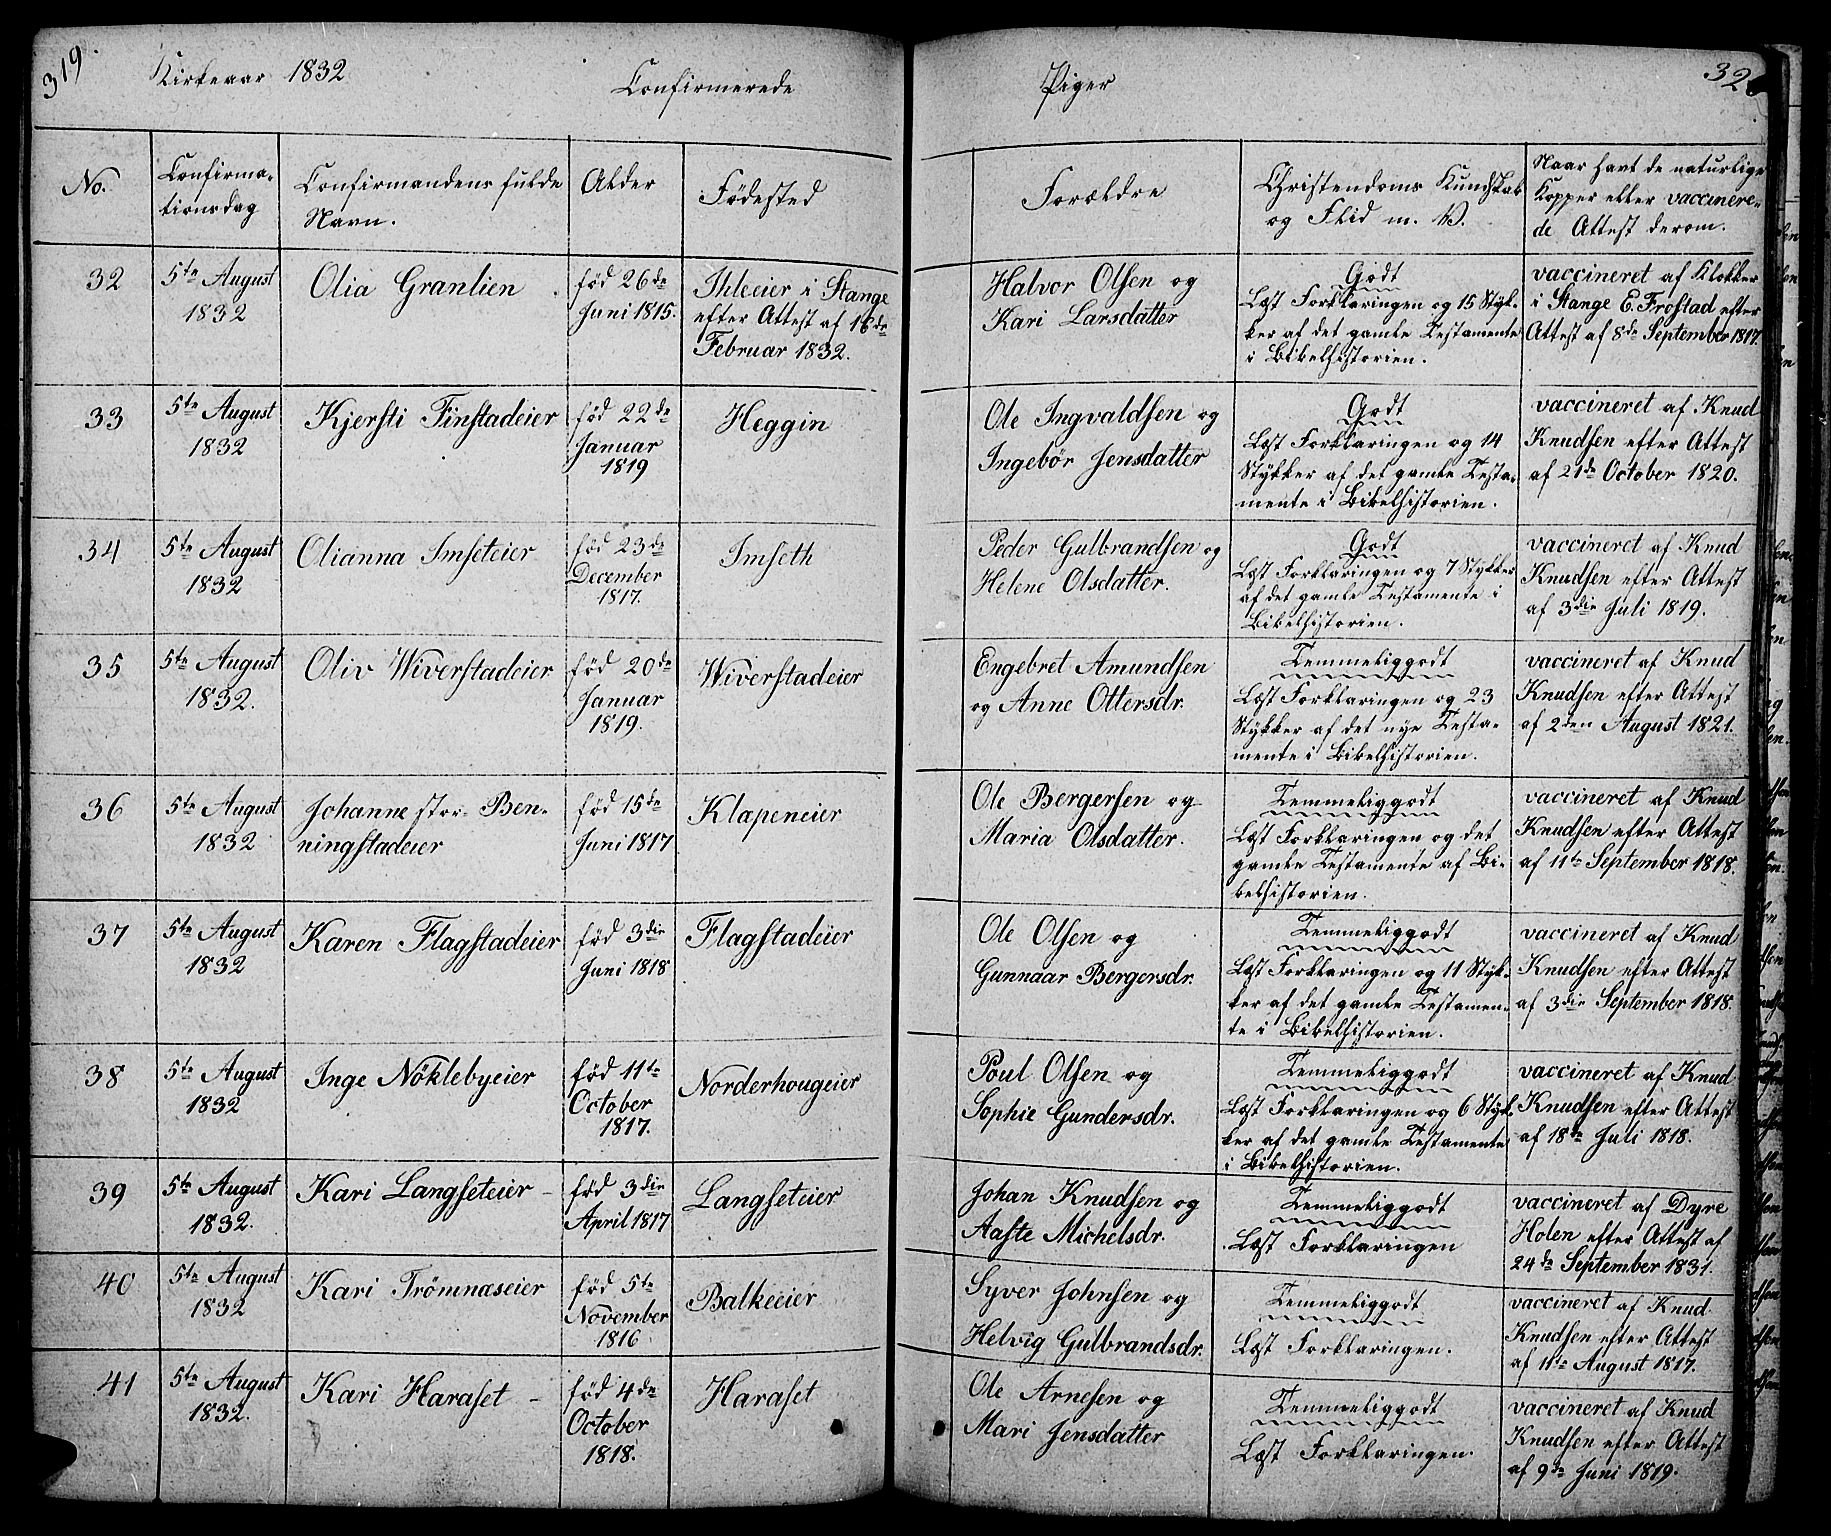 319.
Kirkeaar 1832
Confirmerede
Piger
No.
Confirma-
tionsdag
Confirmandens fulde
Navn.
Alder
Födested
Forældre
Christendoms Kundskab
og Flid m. V.
Naar havt de naturlige
Kopper eller vaccinere-
de Attest derom.
32
5te August
1832
Olia Granlien
föd 26de
Juni 1815.
Ihleeier i Stange
efter Attest af 16de
Februar 1832.
Halvor Olsen og
Kari Larsdatter
Godt
Læst Forklaringen og 15 Styk-
ker af det gamle Testamente
i Bibelhistorien.
vaccineret af Klokker
i Stange E. Frostad efter
Attest af 8de September 1817.
33
5te August
1832
Kjersti Finstadeier
föd 22de
Januar
1819
Heggin
Ole Ingvaldsen og
Ingebör Jensdatter
Godt
Læst Forklaringen og 14
Stykker af det gamle Testa-
mente i Bibelhistorien.
vaccineret af Knud
Knudsen efter Attest
af 21de October 1820.
34
5te August
1832
Olianna Imseteier
föd 23de
December
1817.
Imseth
Peder Gulbrandsen og
Helene Olsdatter.
Godt
Læst Forklaringen og 7 Stykker
af det gamle Testamente i
Bibelhistorien.
vaccineret af Knud
Knudsen efter Attest
af 3die Juli 1819.
35
5te August
1832.
Oliv Wiverstadeier
föd 20de
Januar
1819.
Wiverstadeier
Engebret Amundsen
og Anne Ottersdr.
Temmeliggodt
Læst Forklaringen og 23
Stykker af det nye Testa-
mente i Bibelhistorien.
vaccineret af Knud
Knudsen efter Attest
af 2den August 1821.
36
5te August
1832
Johanne stor-Ben-
ningstadeier
föd 15de
Juni 1817
Klapeneier
Ole Bergersen og
Maria Olsdatter.
Temmeliggodt
Læst Forklaringen og det
gamle Testamente af Bi-
belhistorien.
vaccineret af Knud
Knudsen efter Attest
af 11te September 1818.
37
5te August
1832
Karen Flagstadeier
föd 3die
Juni 1818
Flagstadeier
Ole Olsen og
Gunnaar Bergersdr.
Temmeliggodt
Læst Forklaringen og 11 Styk-
ker af det gamle Testamen-
te i Bibelhistorien.
vaccineret af Knud
Knudsen efter Attest
af 3die September 1818.
38
5te August
1832
Inge Nöklebyeier
föd 11te
October
1817.
Norderhougeier
Poul Olsen og
Sophie Gundersdr.
Temmeliggodt
Læst Forklaringen og 6 Styk-
ker af det gamle Testamente
i Bibelhistorien.
vaccineret af Knud
Knudsen efter Attest
af 18de Juli 1818.
39
5te August
1832.
Kari Langseteier
föd 3die
April 1817
Langseteier
Johan Knudsen og
Aaste Michelsdr.
Temmeliggodt
Læst Forklaringen
vaccineret af Dyre
Holen efter Attest af
24de September 1831.
40
5te August
1832
Kari Trömnæseier
föd 5te
November
1816
Balkeeier
Syver Johnsen og
Helvig Gulbrandsdr.
Temmeliggodt
Læst Forklaringen.
vaccineret af Knud
Knudsen efter Attest
af 11te August 1817.
41
5te August
1832.
Kari Haraset
föd 4de
October
1818.
Haraset
Ole Arnesen og
Mari Jensdatter
Temmeliggodt
Læst Forklaringen.
vaccineret af Knud
Knudsen efter Attest
af 9de Juni 1819.